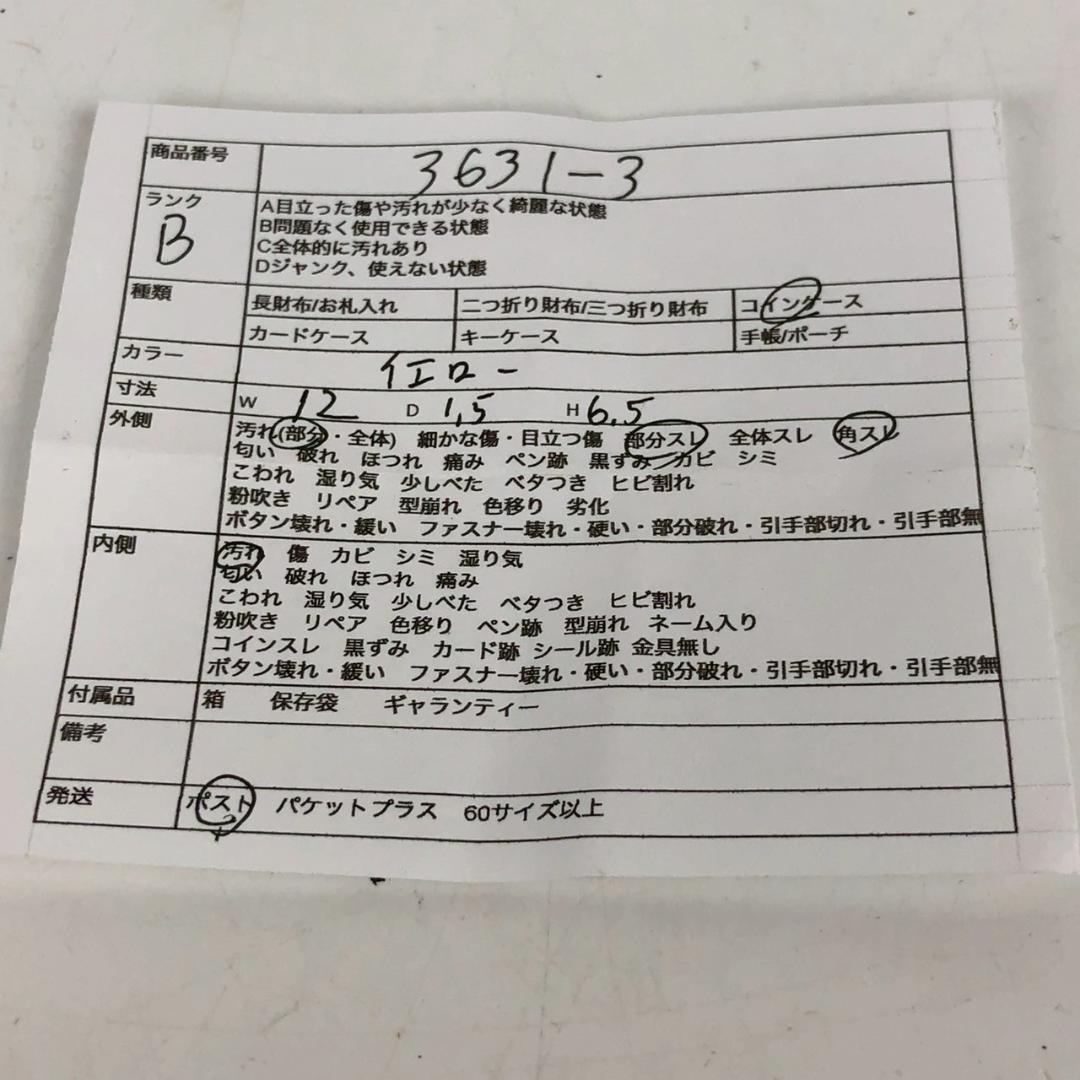 商品番号 3631-3
ランク B
A目立った傷や汚れが少なく綺麗な状態
B問題なく使用できる状態
C全体的に汚れあり
Dジャンク、使えない状態
種類 長財布/お札入れ 二つ折り財布/三つ折り財布 コインケース
カードケース キーケース 手帳/ポーチ
カラー イエロー
寸法 W 12 D 1,5 H 6,5
外側 汚れ(部分・全体) 細かな傷・目立つ傷 部分スレ 全体スレ 角スレ
匂い 破れ ほつれ 痛み ペン跡 黒ずみ カビ シミ
こわれ 湿り気 少しべた ベタつき ヒビ割れ
粉吹き リペア 型崩れ 色移り 劣化
ボタン壊れ・緩い ファスナー壊れ・硬い・部分破れ・引手部切れ・引手部無
内側 汚れ 傷 カビ シミ 湿り気
匂い 破れ ほつれ 痛み
こわれ 湿り気 少しべた ベタつき ヒビ割れ
粉吹き リペア 色移り ペン跡 型崩れ ネーム入り
コインスレ 黒ずみ カード跡 シール跡 金具無し
ボタン壊れ・緩い ファスナー壊れ・硬い・部分破れ・引手部切れ・引手部無
付属品 箱 保存袋 ギャランティー
備考
発送 ポスト パケットプラス 60サイズ以上